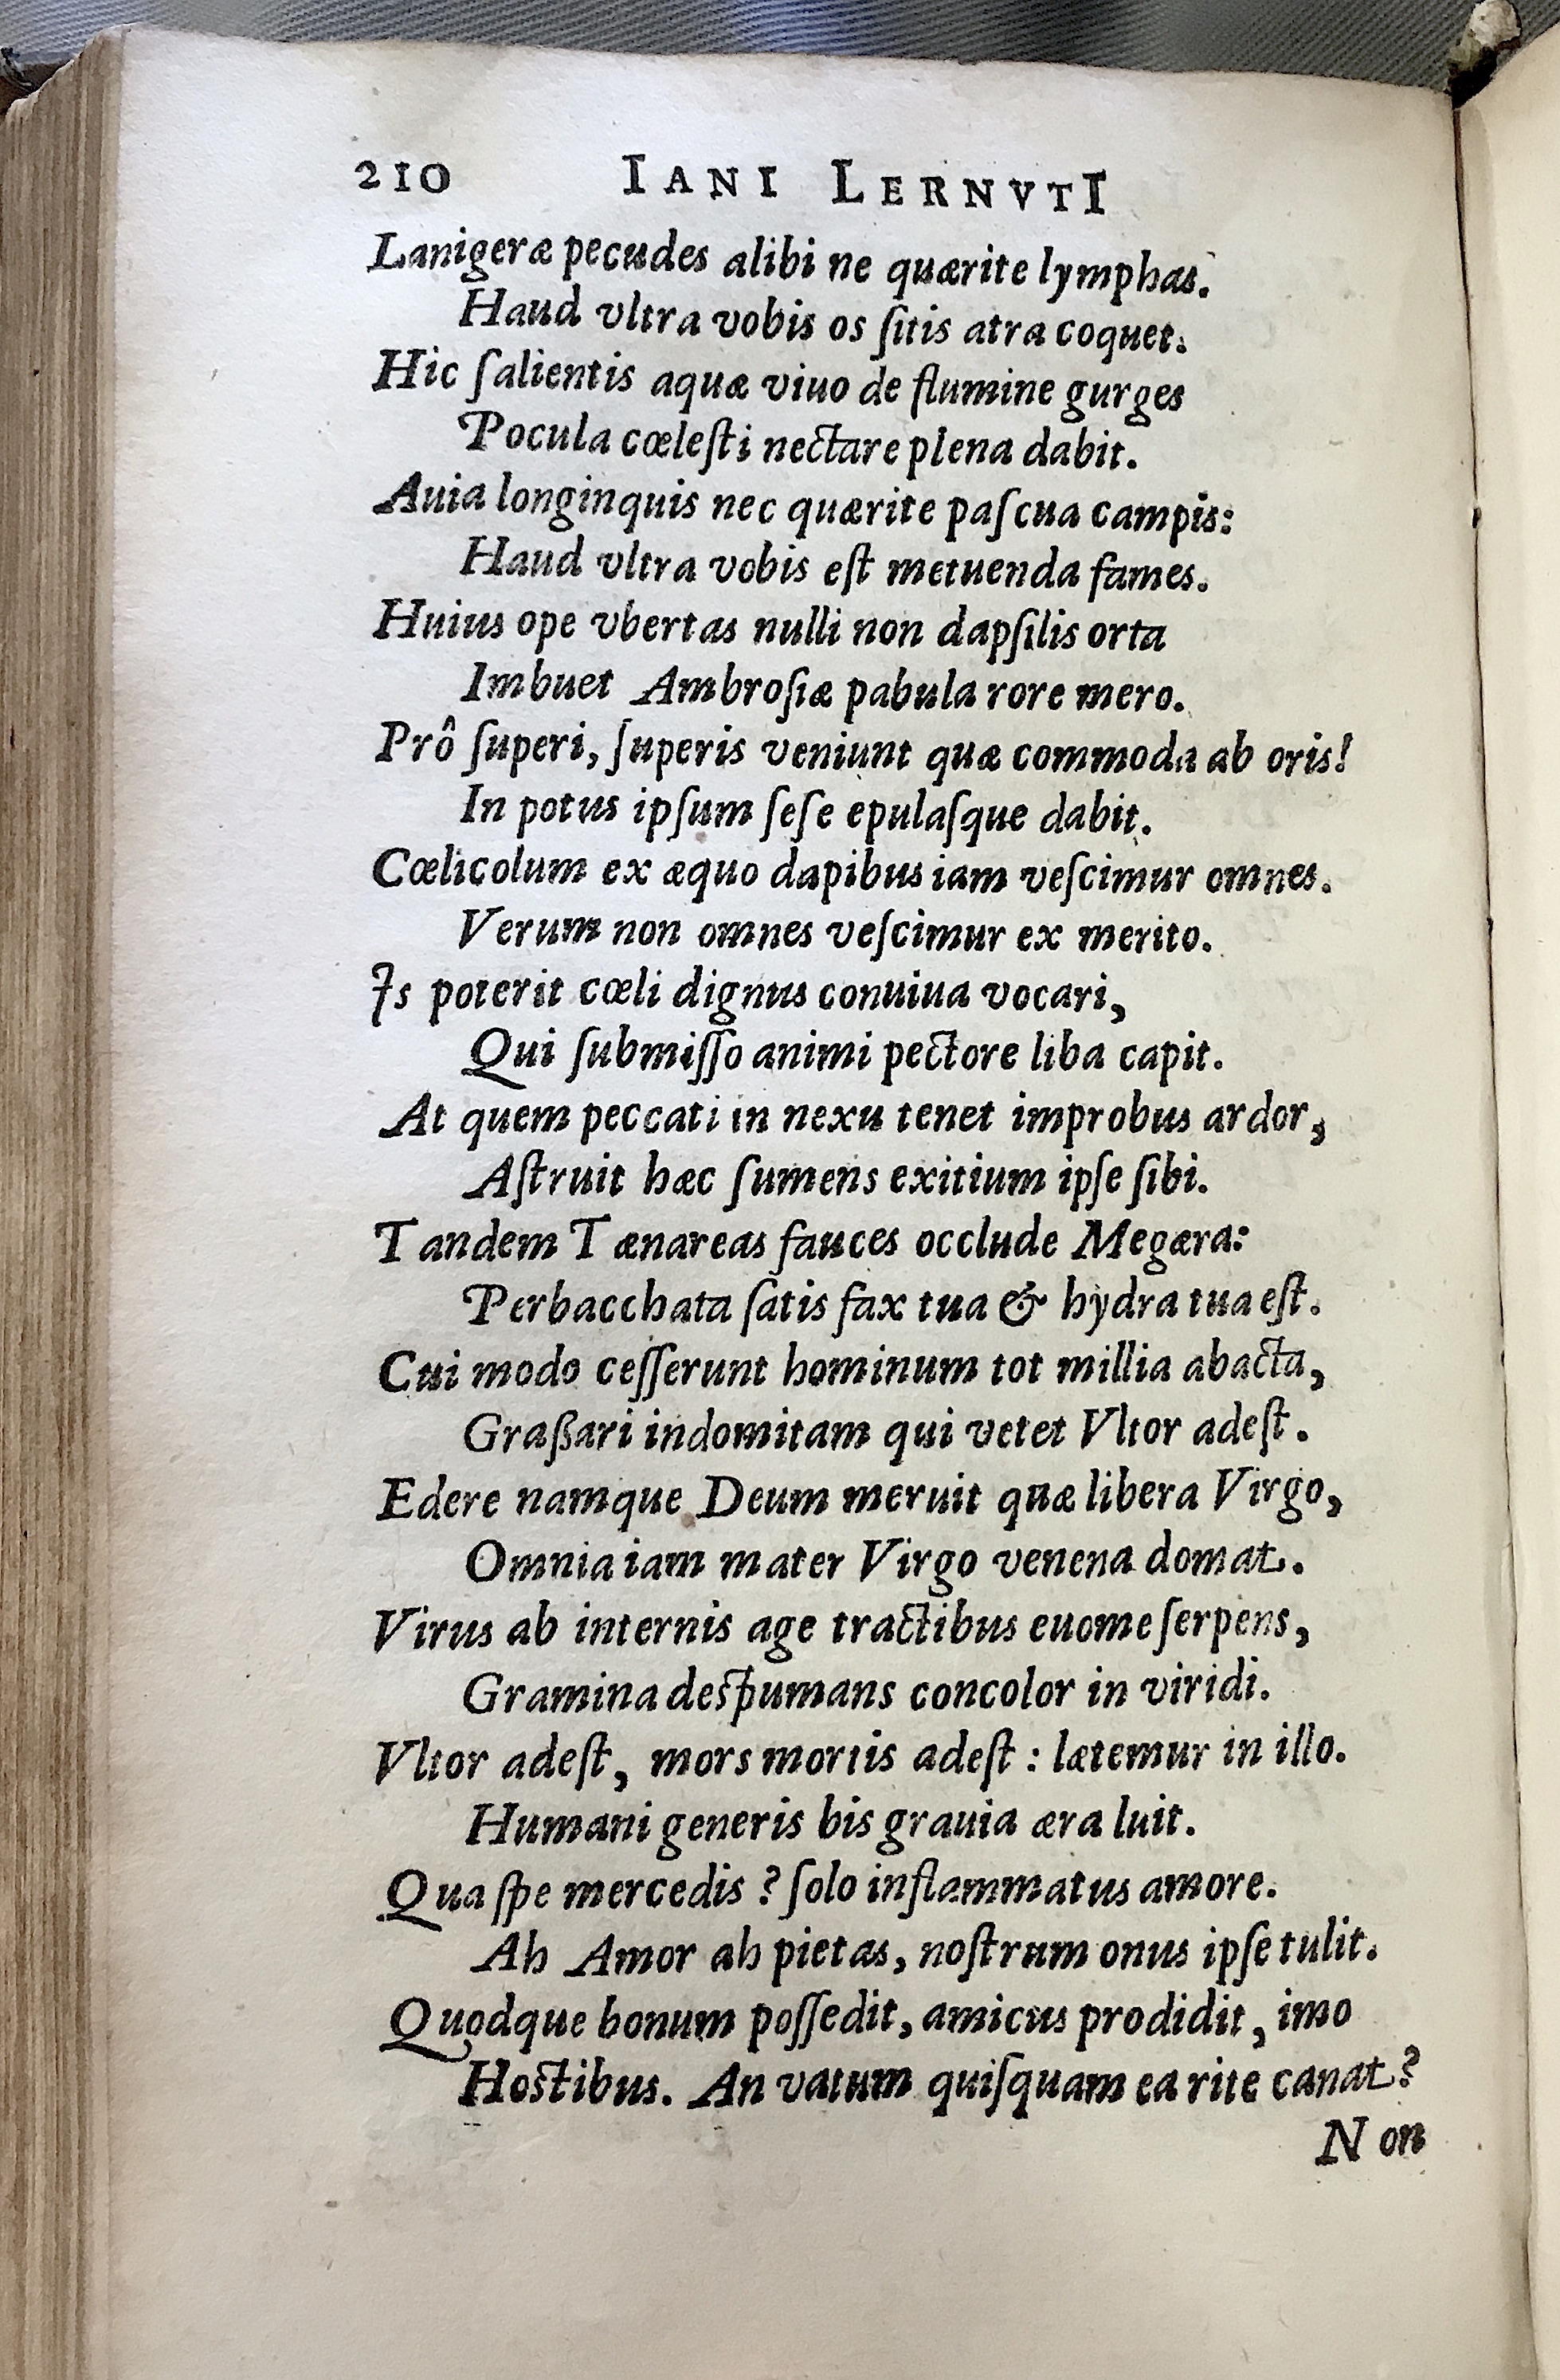 210 IANI LERNVTI
Lanigeræ pecudes alibi ne quærite lymphas.
Haud vltra vobis os ſitis atra coquet.
Hic ſalientis aquæ viuo de flumine gurges
Pocula cœleſti nectare plena dabit.
Auia longinquis nec quærite paſcua campis:
Haud vltra vobis eſt metuenda fames.
Huius ope vbertas nulli non dapſilis orta
Imbuet Ambroſiæ pabula rore mero.
Prô ſuperi, ſuperis veniunt quæ commoda ab oris!
In potus ipſum ſeſe epulaſque dabit.
Cœlicolum ex æquo dapibus iam veſcimur omnes.
Verum non omnes veſcimur ex merito.
Is poterit cœli dignus conuiua vocari,
Qui ſubmiſſo animi pectore liba capit.
At quem peccati in nexu tenet improbus ardor,
Aſtruit hæc ſumens exitium ipſe ſibi.
Tandem Tænareas fauces occlude Megæra:
Perbacchata ſatis fax tua & hydra tua eſt.
Cui modo ceſſerunt hominum tot millia abacta,
Graßari indomitam qui vetet Vltor adeſt.
Edere namque Deum meruit quæ libera Virgo,
Omnia iam mater Virgo venena domat.
Virus ab internis age tractibus euome ſerpens,
Gramina deſpumans concolor in viridi.
Vltor adeſt, mors mortis adeſt: lætemur in illo.
Humani generis bis grauia æra luit.
Qua ſpe mercedis? ſolo inflammatus amore.
Ah Amor ah pietas, noſtrum onus ipſe tulit.
Quodque bonum poſſedit, amicus prodidit, imo
Hoſtibus. An vatum quiſquam ea rite canat?
Non